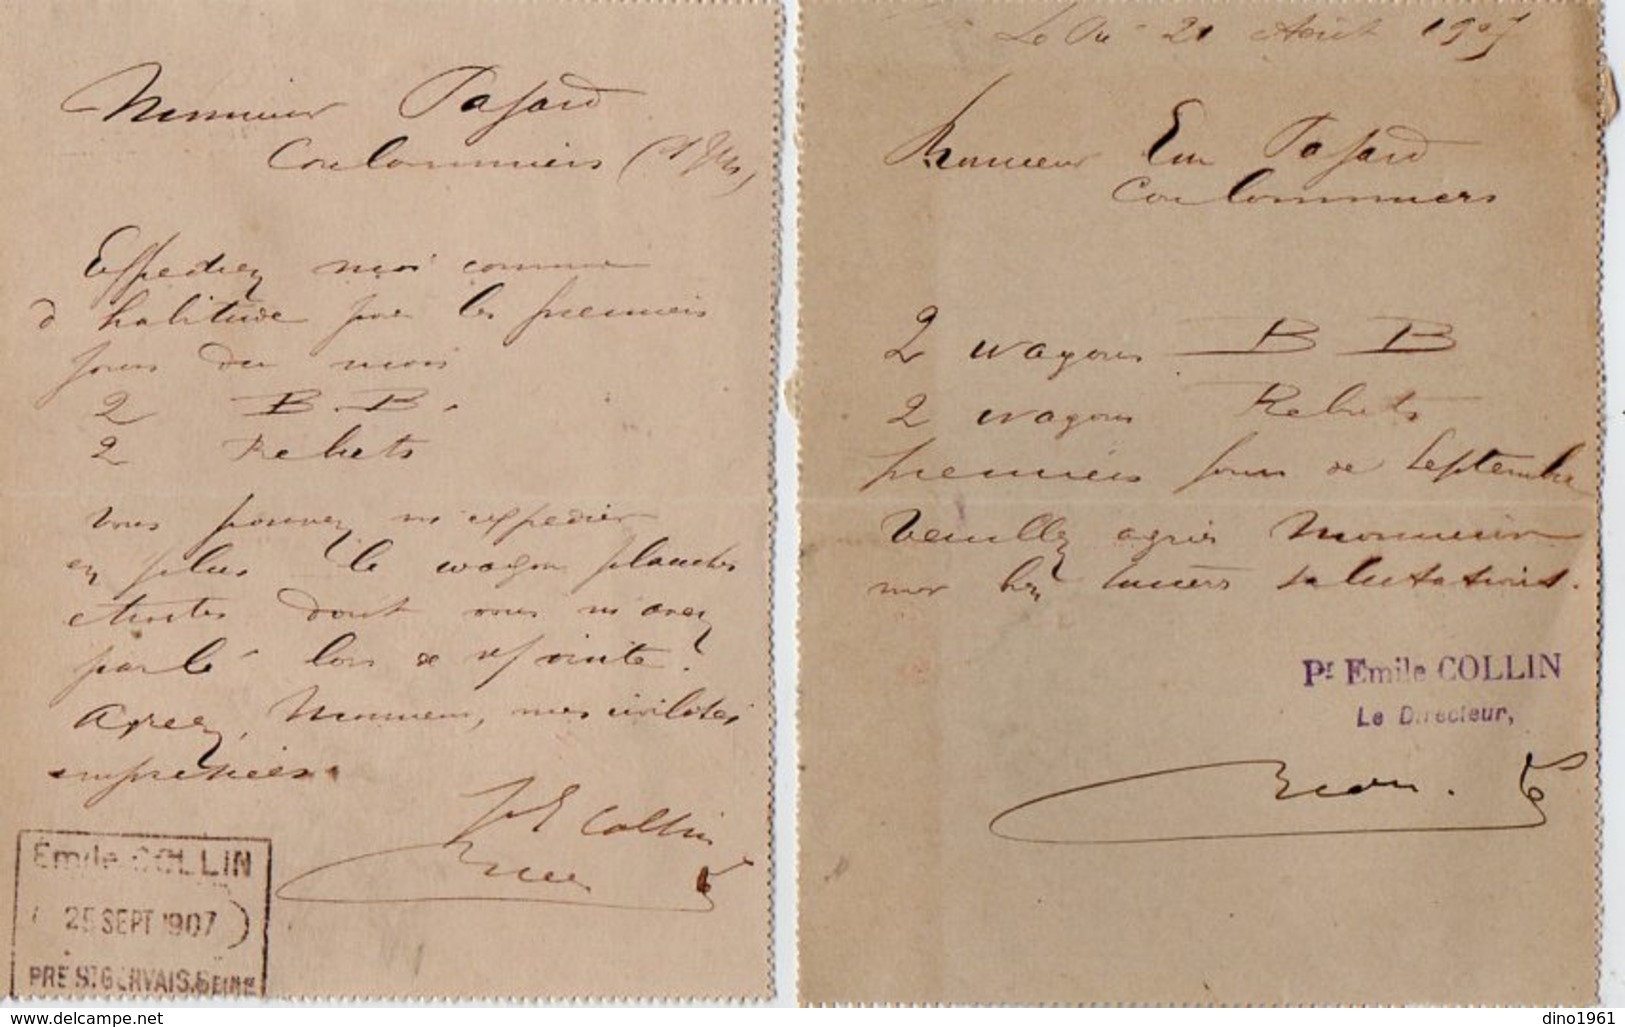 Monsieur Pajard
Coulommiers
Expediez moi comme
d habitude pour les premiers
jours du mois
2 B.B.
2 Rebuts
Vous pouvez m'expedier
en plus le wagon planches
etroites dont vous m'avez
parlé lors de visite.
Agreez, Monsieur, mes civilités
empressées.
E Collin
Émile COLLIN
25 SEPT 1907
PRÉ ST GERVAIS. SEINE
Le Pré 21 Août 1907
Monsieur Em Pajard
Coulommiers
2 wagons B B
2 wagons Rebuts
premiers jours de Septembre
Veuillez agréer Monsieur
mes bien sincères salutations.
Pr Emile COLLIN
Le Directeur,
www.delcampe.net
dino1961